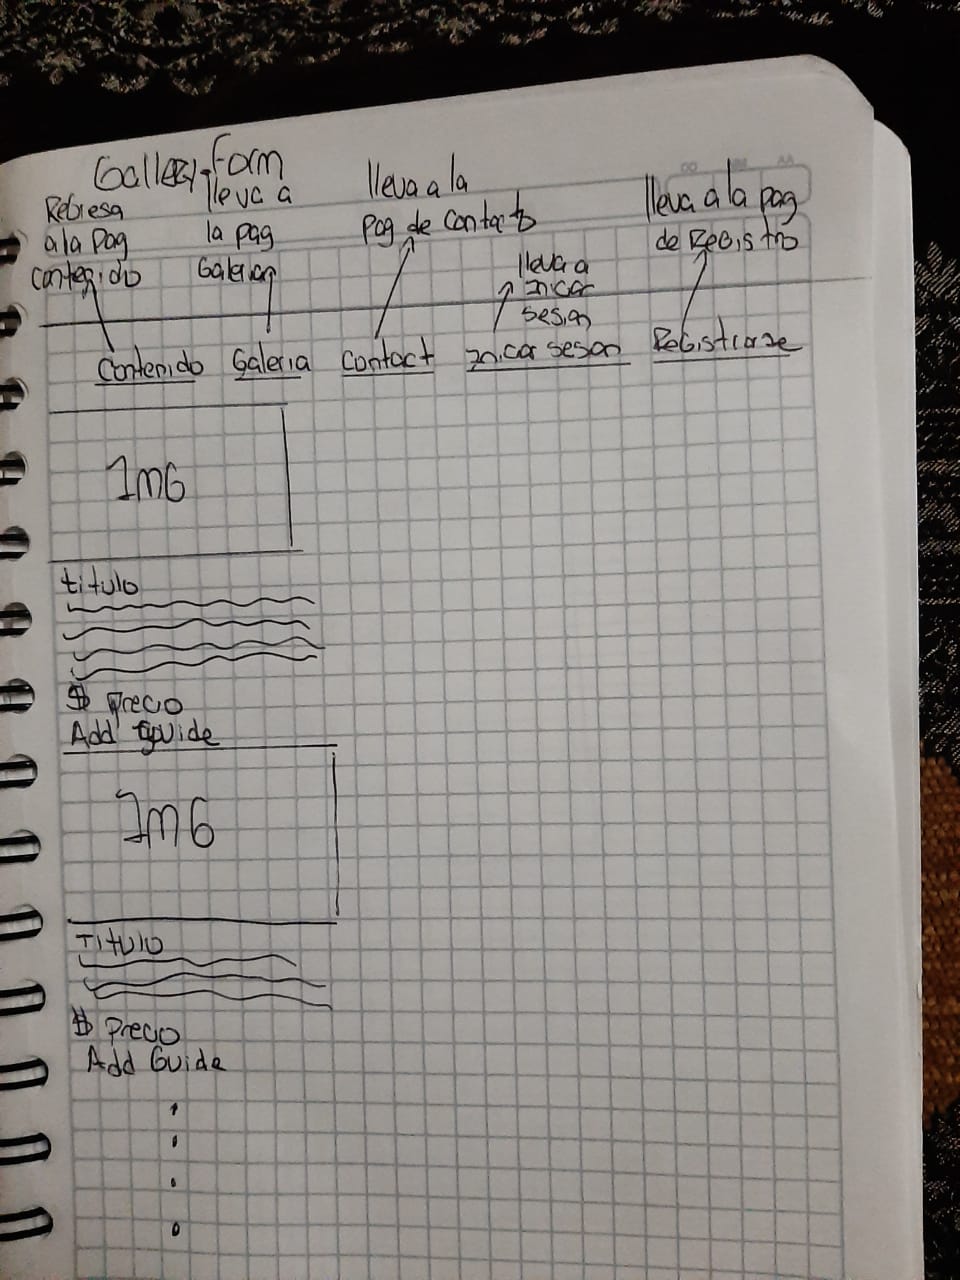 Gallery-Form
Regresa
a la Pag
contenido
lleva a
la pag
Galeria
lleva a la
Pag de contacto
lleva a
Inicar
sesion
lleva a la pag
de Registro
Contenido Galeria Contact Inicar sesion Registrarse
Img
titulo
$ Precio
Add Guide
Img
Titulo
$ Precio
Add Guide